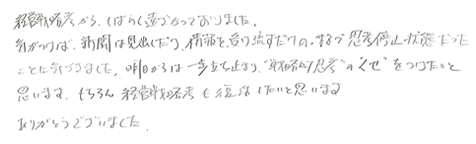 経営戦略考から、しばらく遠ざかっておりました。
気がつけば、新聞は見出しだけ、情報を受け流すだけの、まるで思考停止状態だった
ことに気づきました。明日からは一歩立ち止まり、"戦略的思考"の"くせ"をつけたいと
思います。もちろん経営戦略考も復活したいと思います
ありがとうございました。